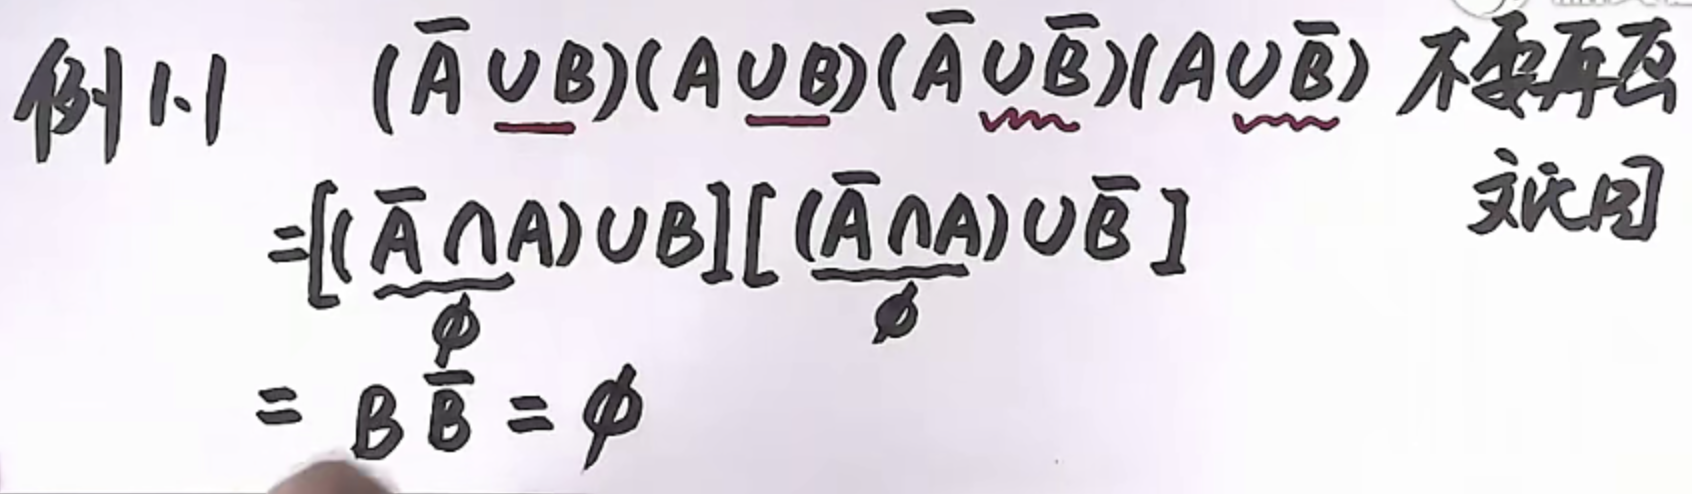 例1.1 (A̅∪B)(A∪B)(A̅∪B̅)(A∪B̅) 不要再画
文氏图
=[(A̅∩A)∪B][(A̅∩A)∪B̅]
ϕ ϕ
= B B̅ = ϕ